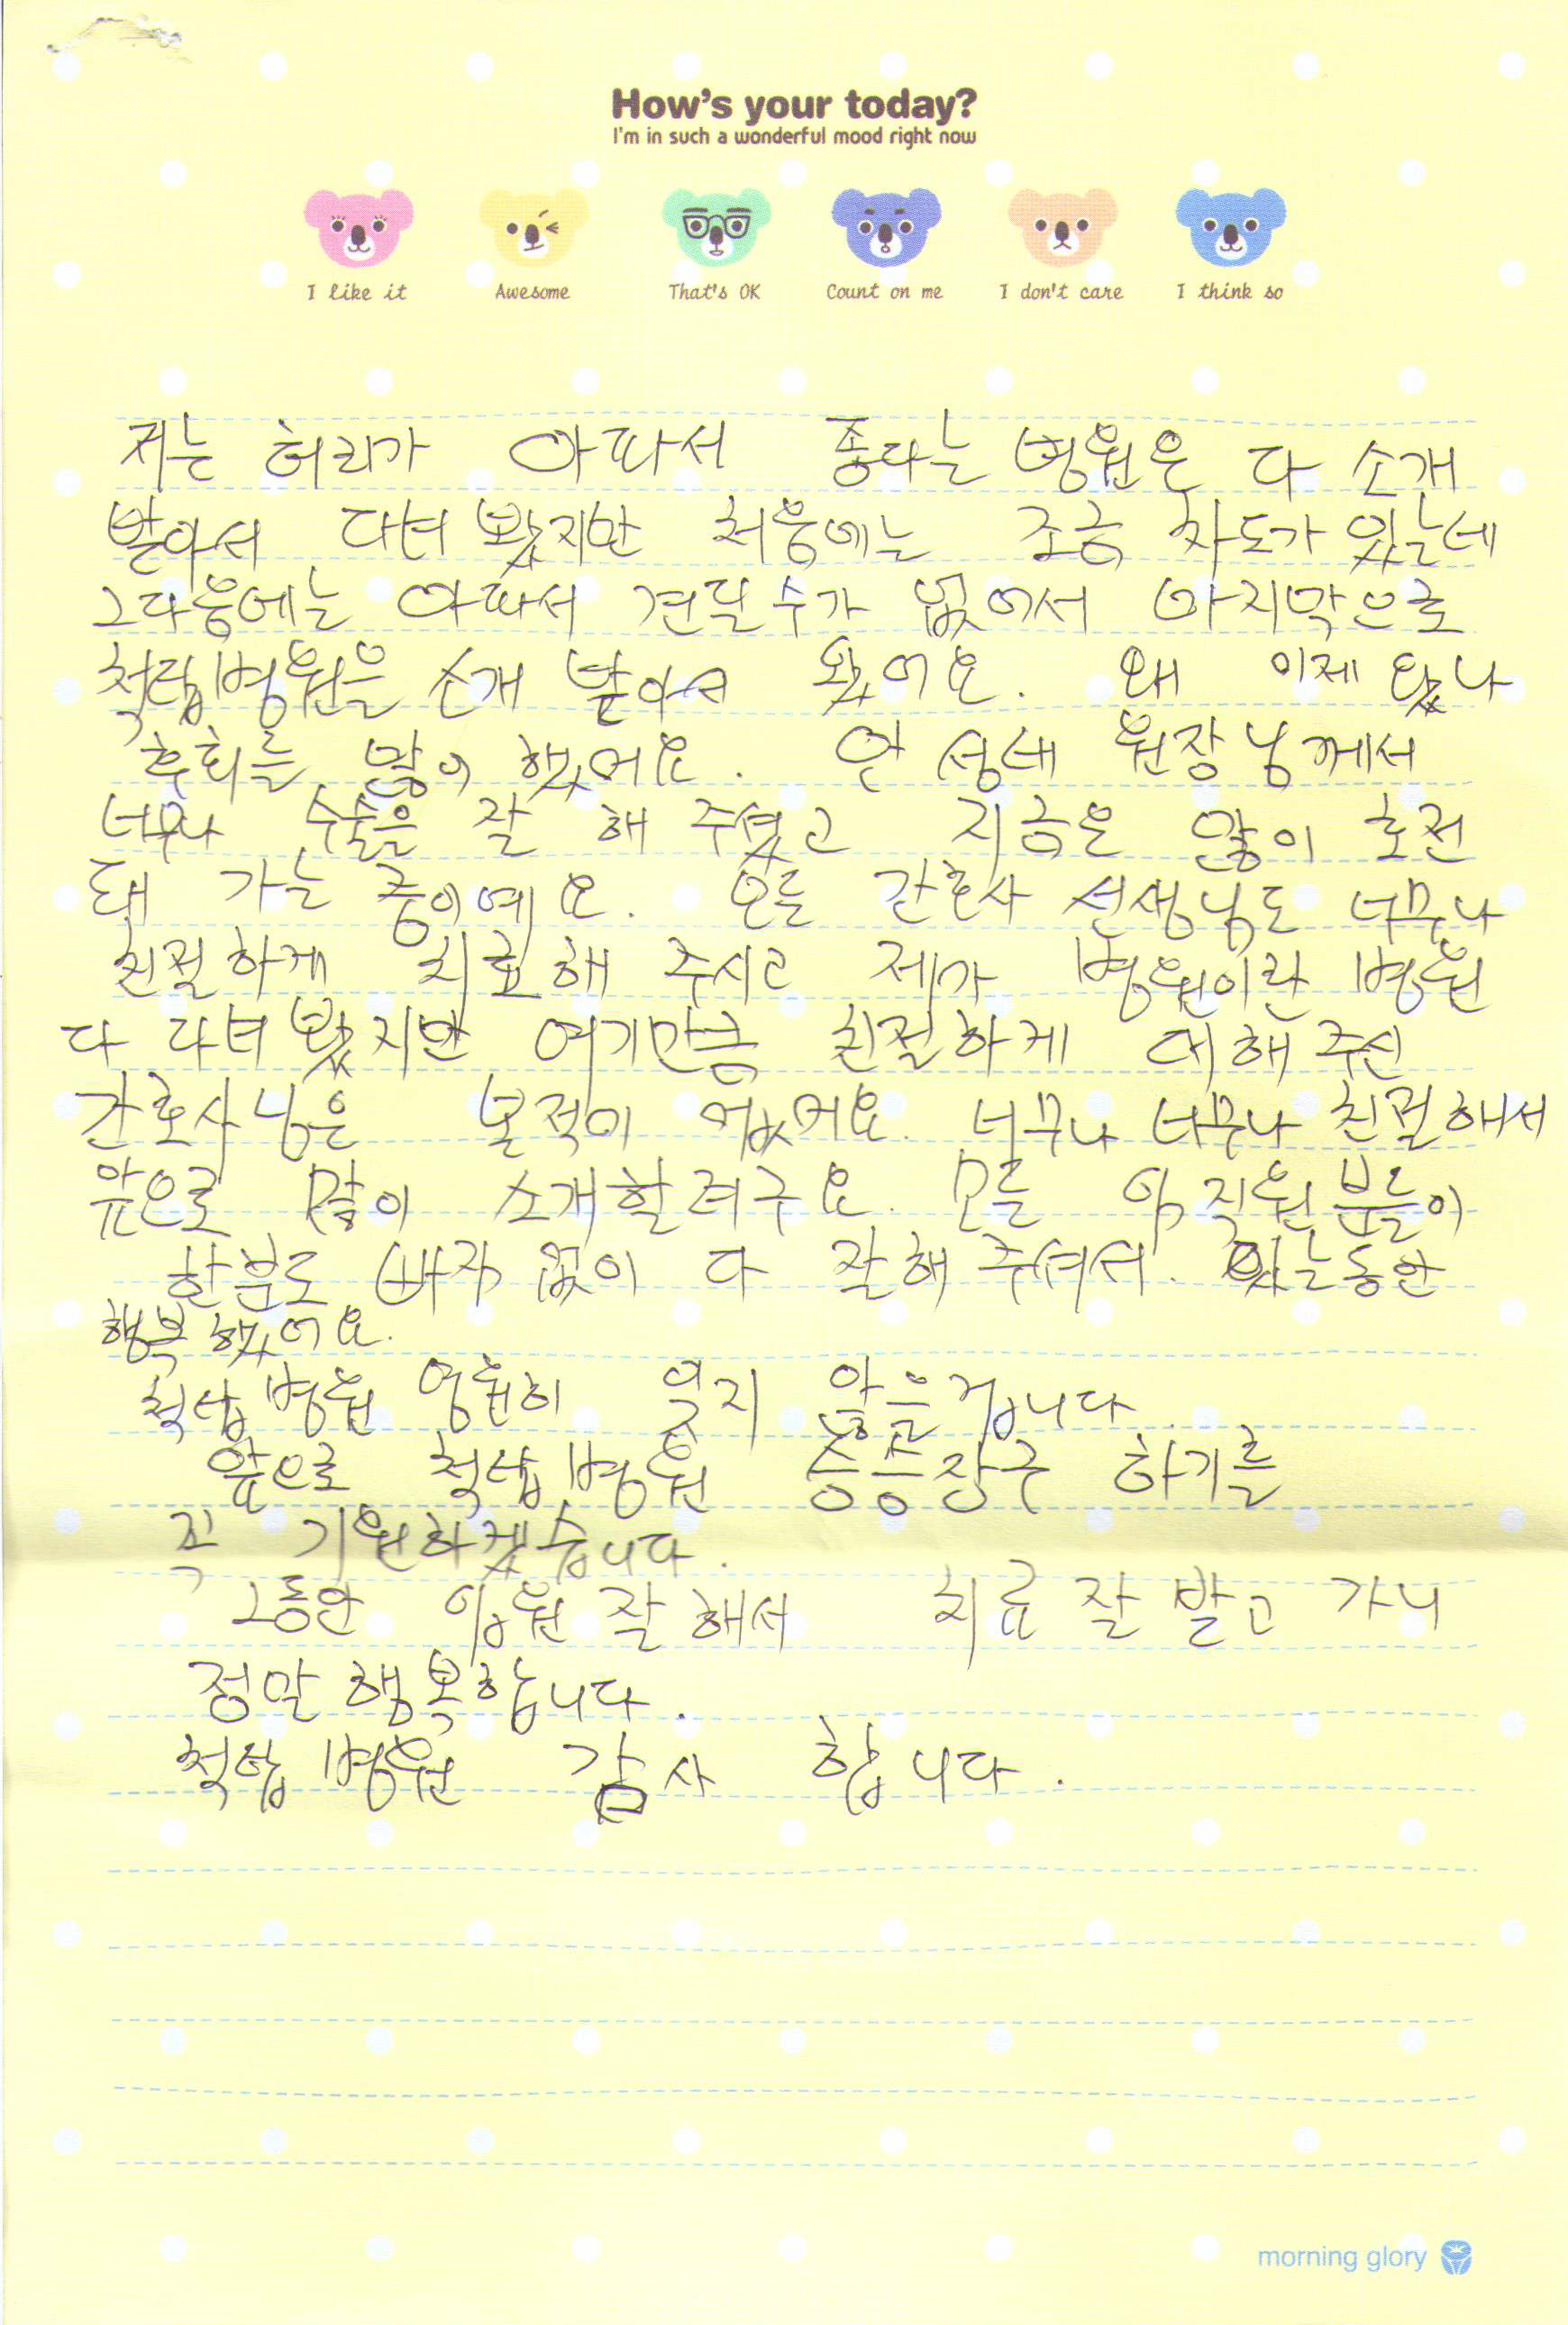 How's your today?
I'm in such a wonderful mood right now
I like it Awesome That's OK Count on me I don't care I think so
저는 허리가 아파서 좋다는 병원은 다 소개
받아서 다녀 봤지만 처음에는 조금 차도가 있는데
그다음에는 아파서 견딜수가 없어서 마지막으로
척탑병원을 소개 받아서 왔어요. 왜 이제 왔나
후회를 많이 했어요. 안성네 원장님께서
너무나 수술을 잘 해 주셨고 지금은 많이 호전
돼 가는 중이예요. 모든 간호사 선생님도 너무나
친절하게 치료해 주시고 제가 병원이란 병원
다 다녀 봤지만 여기만큼 친절하게 대해 주신
간호사님은 본적이 없어요. 너무나 너무나 친절해서
앞으로 많이 소개할려구요. 모든 임직원분들이
한분도 빠짐 없이 다 잘해 주셔서. 있는동안
행복했어요.
척탑병원 영원히 잊지 않을겁니다.
앞으로 척탑병원 승승장구 하기를
꼭 기원하겠습니다.
그동안 입원 잘 해서 치료 잘 받고 가니
정말 행복합니다.
척탑 병원 감사 합니다.
morning glory